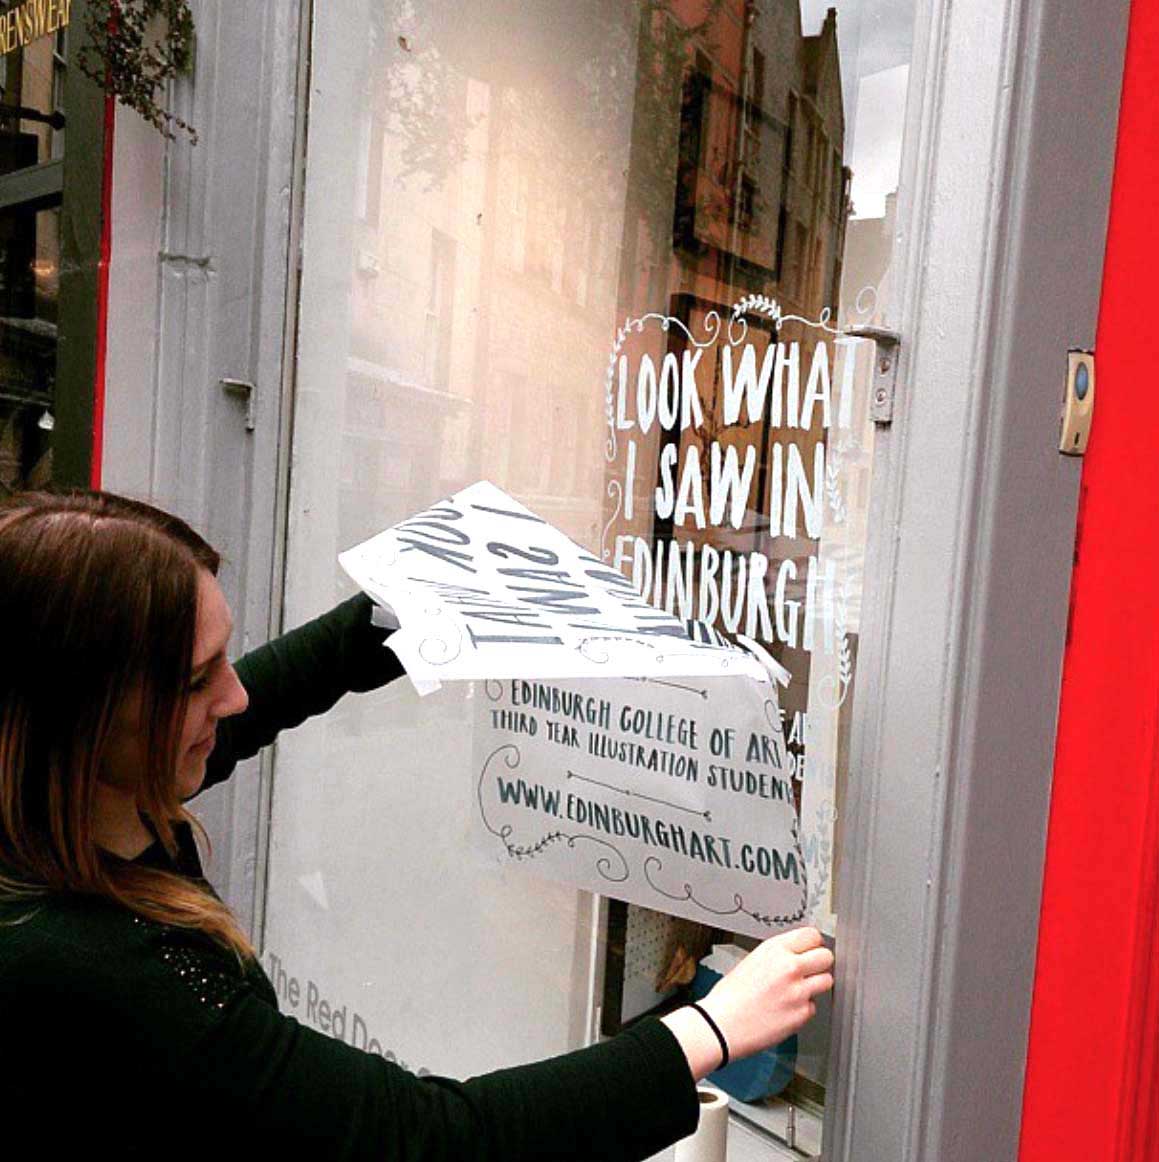 RENSWEAR
LOOK WHAT
I SAW IN
EDINBURGH
EDINBURGH COLLEGE OF ART
THIRD YEAR ILLUSTRATION STUDENT
WWW.EDINBURGHART.COM
The Red Door